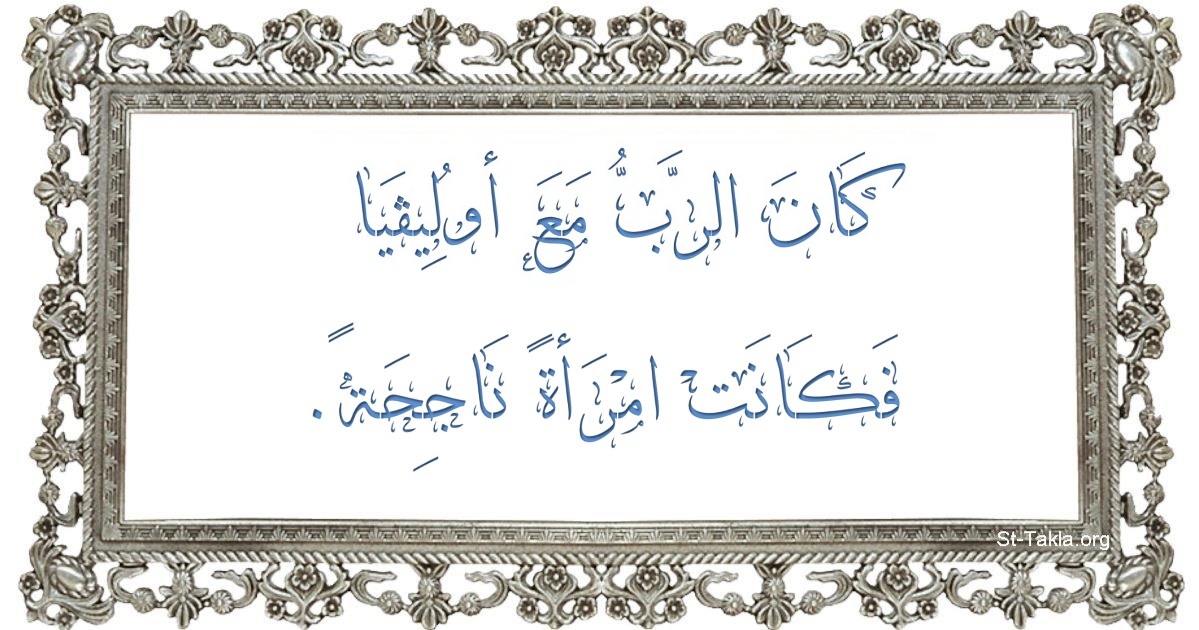 كَانَ الرَّبُّ مَعَ أولِيڤيَا
فَكَانَت امْرَأةً نَاجِحَةً.
St-Takla.org